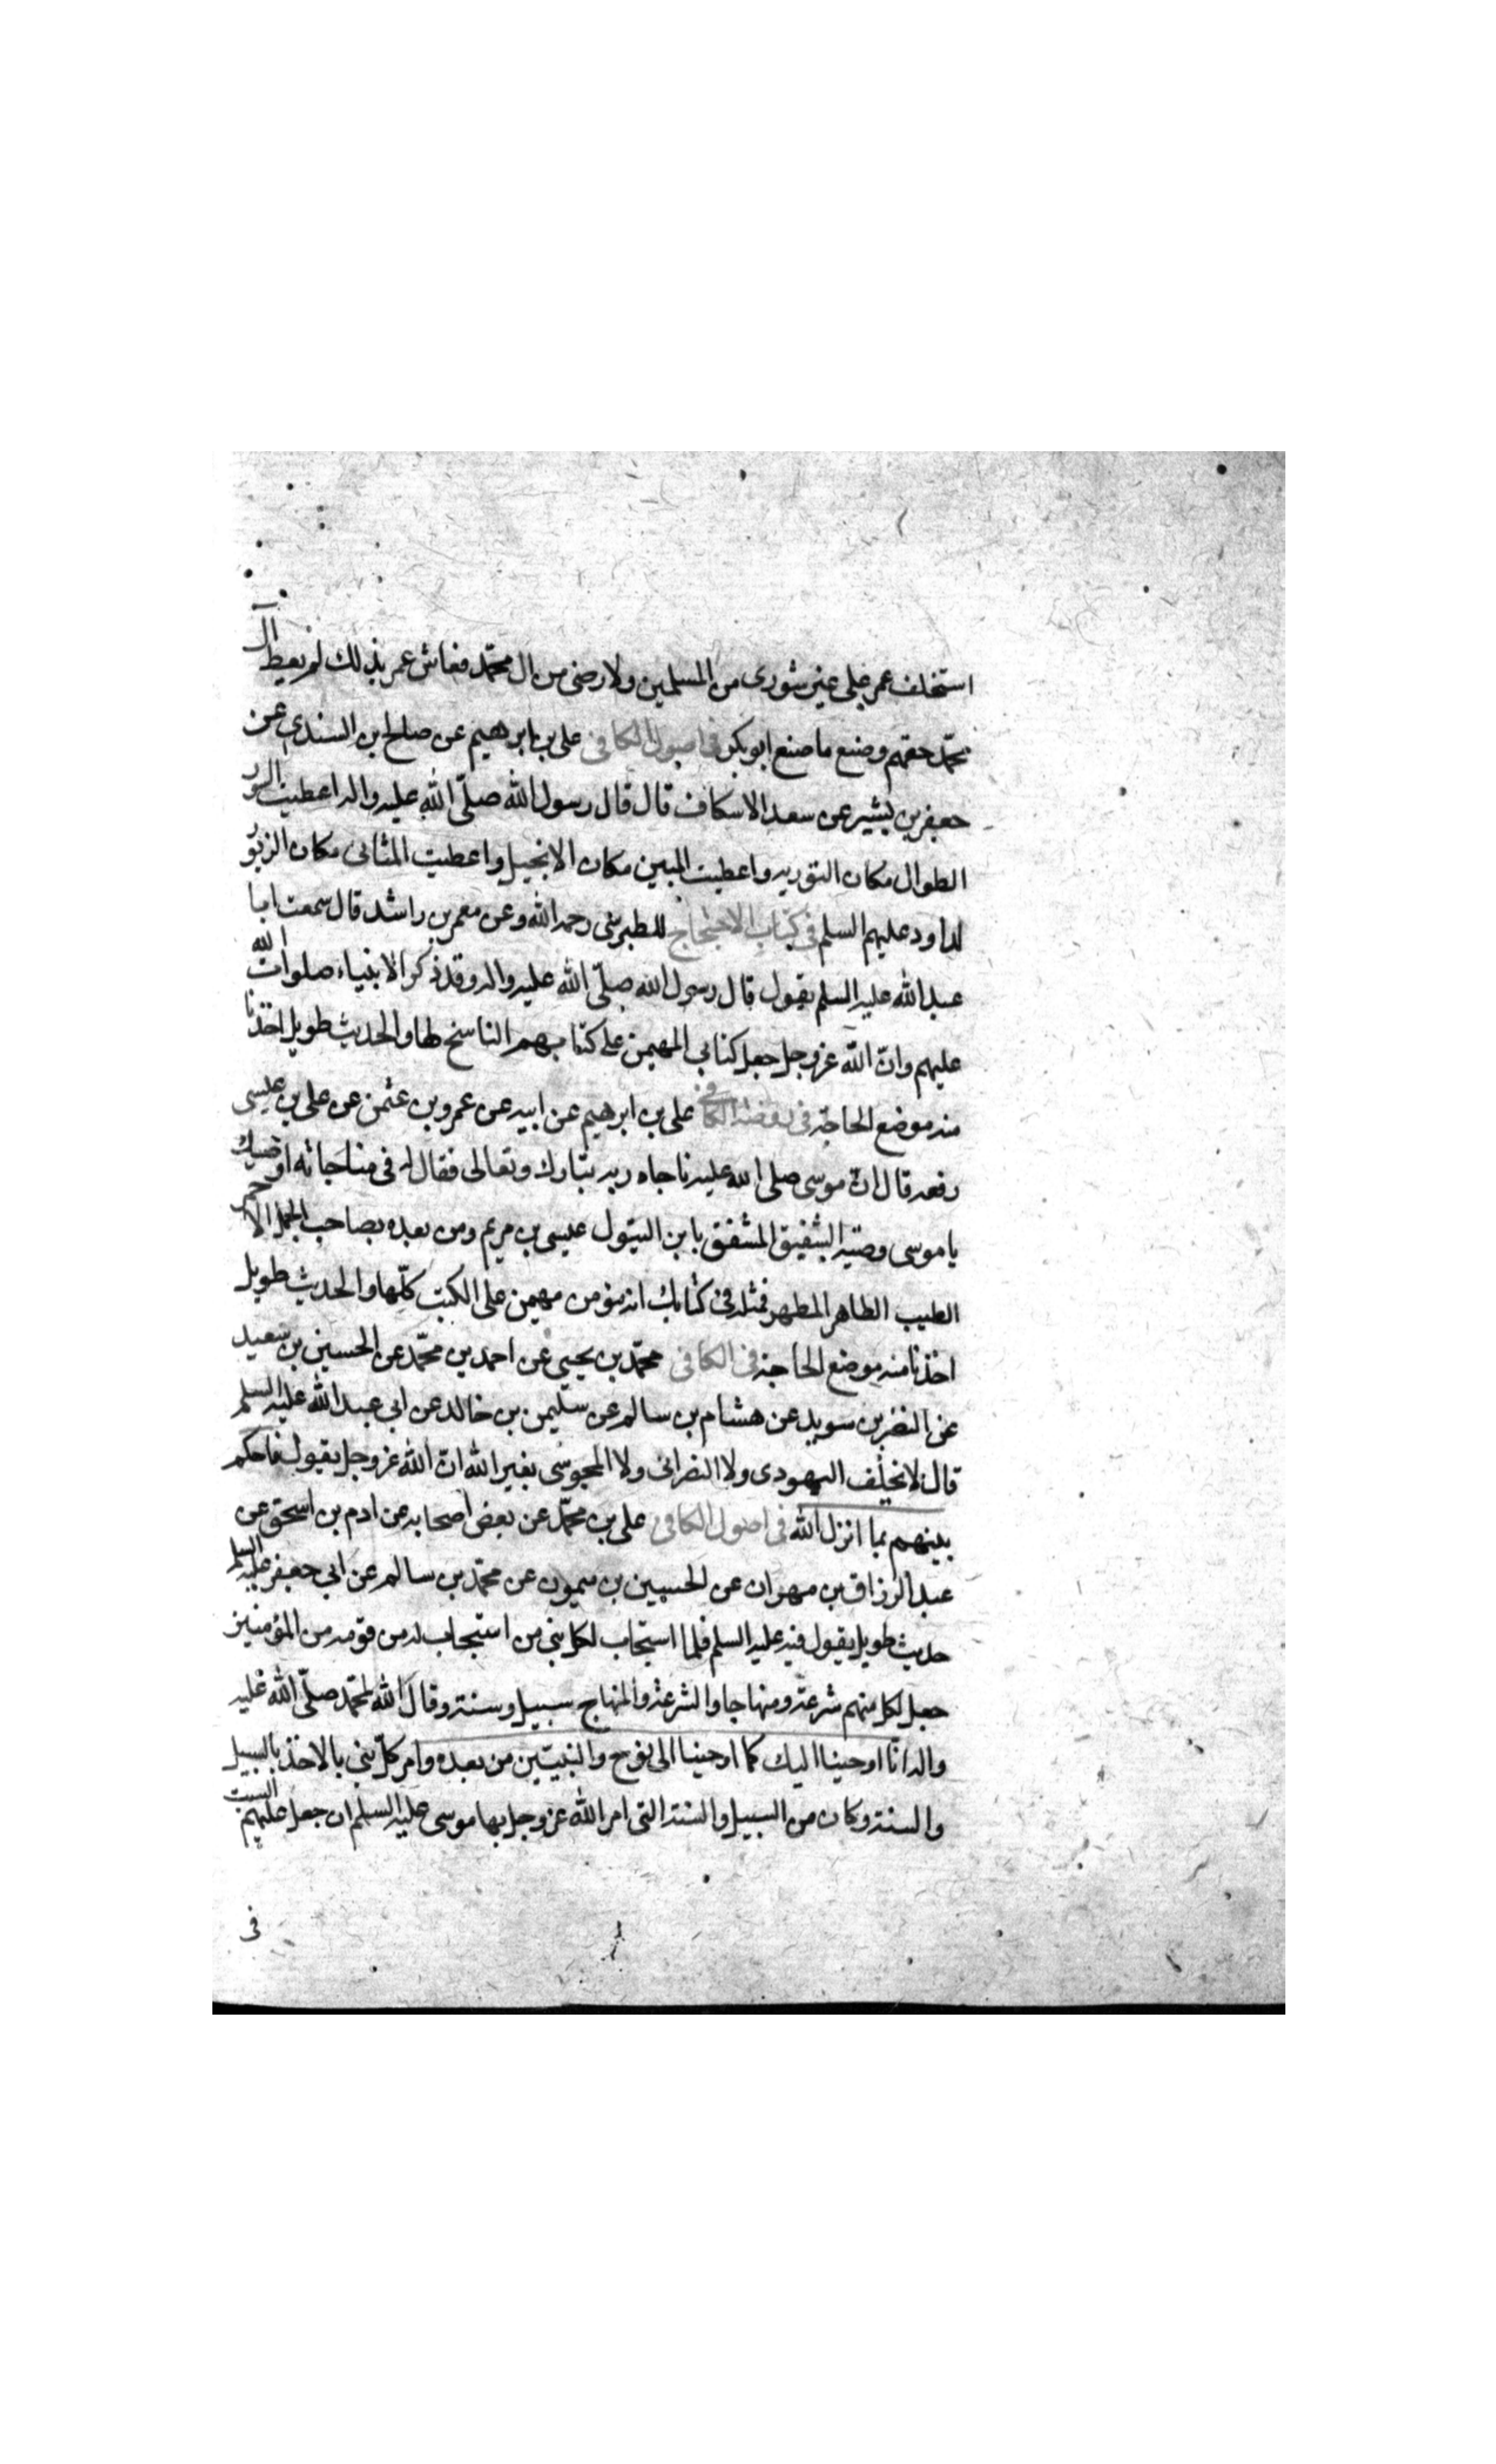 استخلف عمر على غير شورى من المسلمين ولا رضى من ال محمّد فعاش عمر بذلك لم يعط آل
محمّد حقهم وصنع ما صنع ابو بكر فى اصول الكافى على بن ابرهيم عن صالح بن السندى عن
جعفر بن بشير عن سعد الاسكاف قال قال رسول الله صلّى الله عليه واله اعطيت السور
الطوال مكان التورية واعطيت المبين مكان الانجيل واعطيت المثانى مكان الزبور
لداود عليهم السلم فى كتاب الاحتجاج للطبرسى رحمه الله وعن معمر بن راشد قال سمعت ابا
عبد الله عليه السلم يقول قال رسول الله صلّى الله عليه واله وقد ذكر الانبياء صلوات الله
عليهم وانّ الله عز وجل جعل كتابى المهيمن على كتابهم الناسخ لها والحديث طويل اخذنا
منه موضع الحاجة فى روضة الكافى على بن ابرهيم عن ابيه عن عمرو بن عثمن عن على بن عيسى
رفعه قال انّ موسى صلى الله عليه ناجاه ربه تبارك وتعالى فقال له فى مناجاته اوصيك
يا موسى وصيّة الشفيق المشفق بابن البتول عيسى بن مريم ومن بعده بصاحب الجمل الاحمر
الطيب الطاهر المطهر فمثله فى كتابك انه مؤمن مهيمن على الكتب كلّها والحديث طويل
اخذنا منه موضع الحاجة فى الكافى محمّد بن يحيى عن احمد بن محمّد عن الحسين بن سعيد
عن النضر بن سويد عن هشام بن سالم عن سليمن بن خالد عن ابى عبد الله عليه السلم
قال لا نحلف اليهودى ولا النصرانى ولا المجوسى بغير الله انّ الله عز وجل يقول فاحكم
بينهم بما انزل الله فى اصول الكافى على بن محمّد عن بعض اصحابه عن ادم بن اسحق عن
عبد الرزاق بن مهران عن الحسين بن ميمون عن محمّد بن سالم عن ابى جعفر عليه السلم
حديث طويل يقول فيه عليه السلم فلما استجاب لكل نبى من استجاب له من قومه من المؤمنين
جعل لكل منهم شرعة ومنهاجا والشرعة والمنهاج سبيل وسنة وقال الله لمحمّد صلّى الله عليه
واله انّا اوحينا اليك كما اوحينا الى نوح والنبيّين من بعده وامر كل نبى بالاخذ بالسبيل
والسنة وكان من السبيل والسنة التى امر الله عز وجل بها موسى عليه السلم ان جعل عليهم السبت
فى